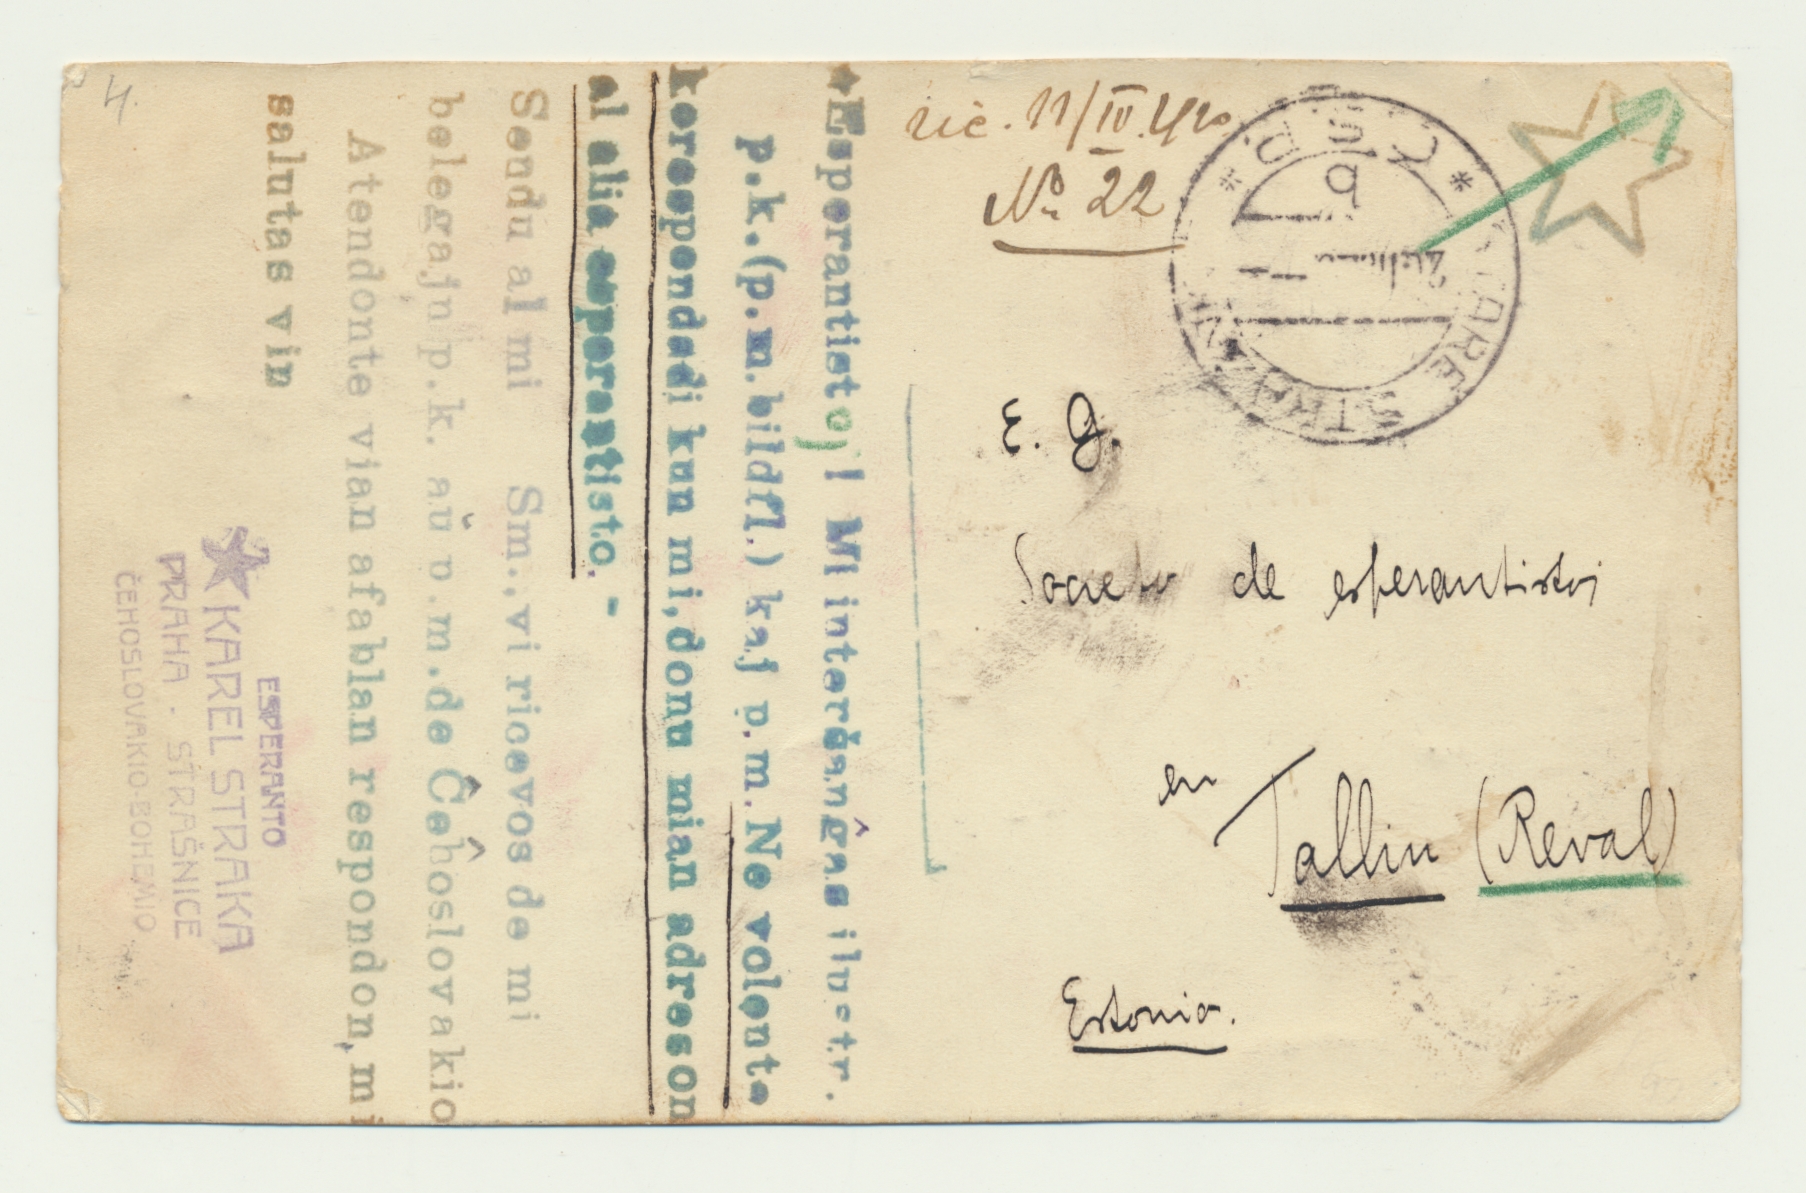 ★Esperantistoj! Mi interŝanĝas ilustr.
p.k.(p.m.bildfl.) kaj p.m. Ne volonte
korespondadi kun mi, donu mian adreson
al alia esperantisto. -
Sendu al mi Sm., vi ricevos de mi
belegajn p.k. aŭ p.m. de Ĉeĥoslovakio
Atendonte vian afablan respondon, mi
salutas vin
ESPERANTO
KAREL STRAKA
PRAHA . STRAŠNICE
ĈEHOSLOVAKIO-BOHEMIO
4.
ric. 11/IV.
No 22
K.u.P.
STARE STRAŠN
b
E. G.
Societo de esperantistoj
en Tallin (Reval)
Estonio.